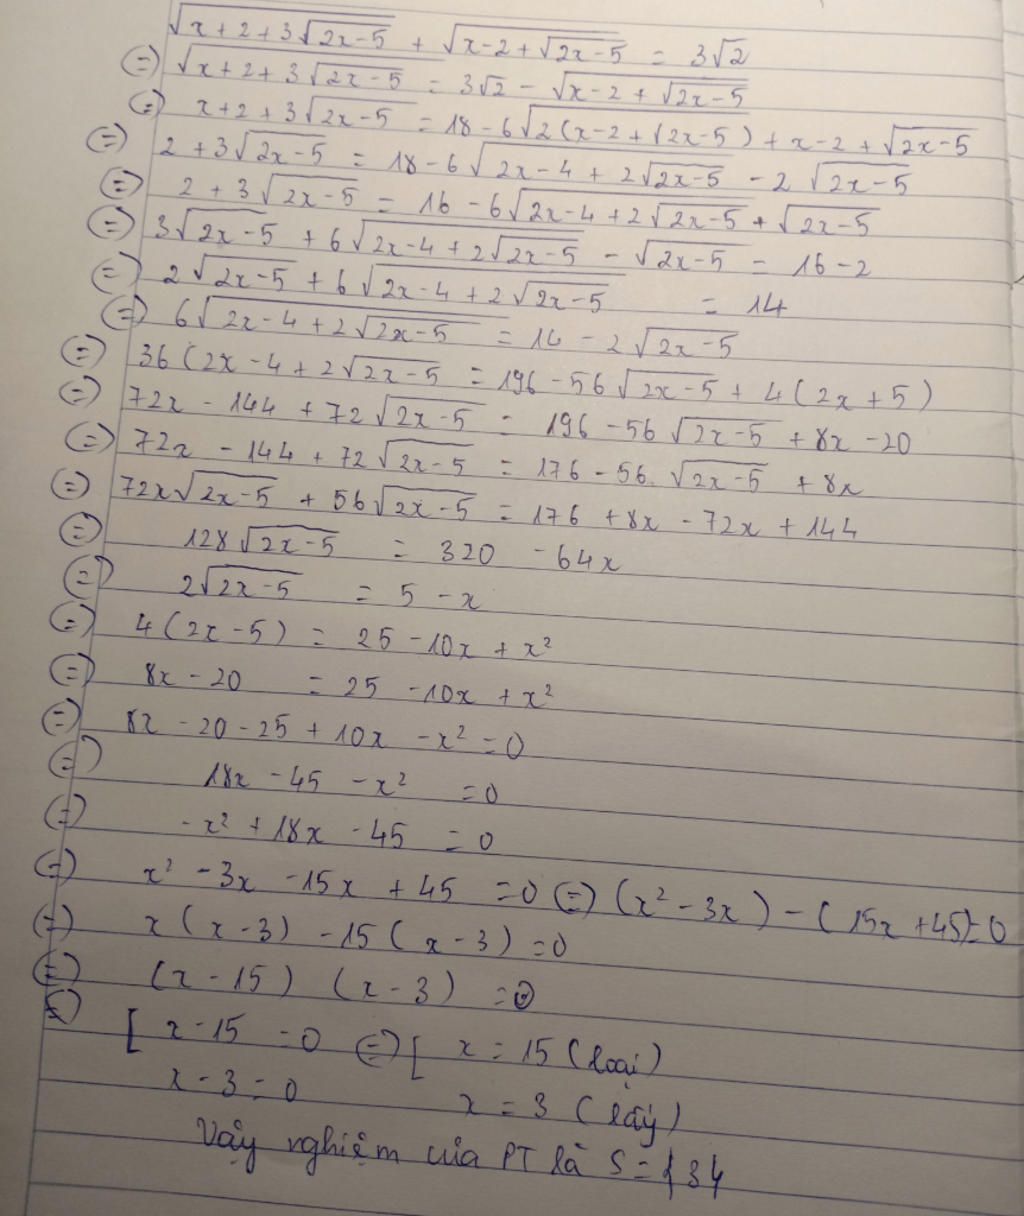 √(x+2+3√(2x-5)) + √(x-2+√(2x-5)) = 3√2
(=) √(x+2+3√(2x-5)) = 3√2 - √(x-2+√(2x-5))
(=) x+2+3√(2x-5) = 18-6√(2(x-2+√(2x-5)) + x-2+√(2x-5)
(=) 2+3√(2x-5) = 18-6√(2x-4+2√(2x-5)) -2 √(2x-5)
(=) 2+3√(2x-5) = 16-6√(2x-4+2√(2x-5)) + √(2x-5)
(=) 3√(2x-5) + 6√(2x-4+2√(2x-5)) - √(2x-5) = 16-2
(=) 2√(2x-5) + 6√(2x-4+2√(2x-5)) = 14
(=) 6√(2x-4+2√(2x-5)) = 14 - 2√(2x-5)
(=) 36(2x-4+2√(2x-5) = 196-56√(2x-5) + 4(2x+5)
(=) 72x - 144 + 72√(2x-5) = 196-56√(2x-5) + 8x -20
(=) 72x - 144 + 72√(2x-5) = 176-56.√(2x-5) + 8x
(=) 72x√(2x-5) + 56√(2x-5) = 176 + 8x - 72x + 144
(=) 128√(2x-5) = 320 - 64x
(=) 2√(2x-5) = 5 - x
(=) 4(2x-5) = 25 -10x + x²
(=) 8x - 20 = 25 -10x + x²
(=) 8x - 20 - 25 + 10x - x² = 0
(=) 18x - 45 - x² = 0
(=) - x² + 18x - 45 = 0
(=) x² - 3x - 15x + 45 = 0 (=) (x² - 3x) - (15x + 45) = 0
(=) x(x-3) - 15(x-3) = 0
(=) (x-15) (x-3) = 0
(=) [ x-15 = 0 (=) [ x = 15 (loại)
x-3 = 0 x = 3 (lấy)
Vậy nghiệm của PT là S = {3}